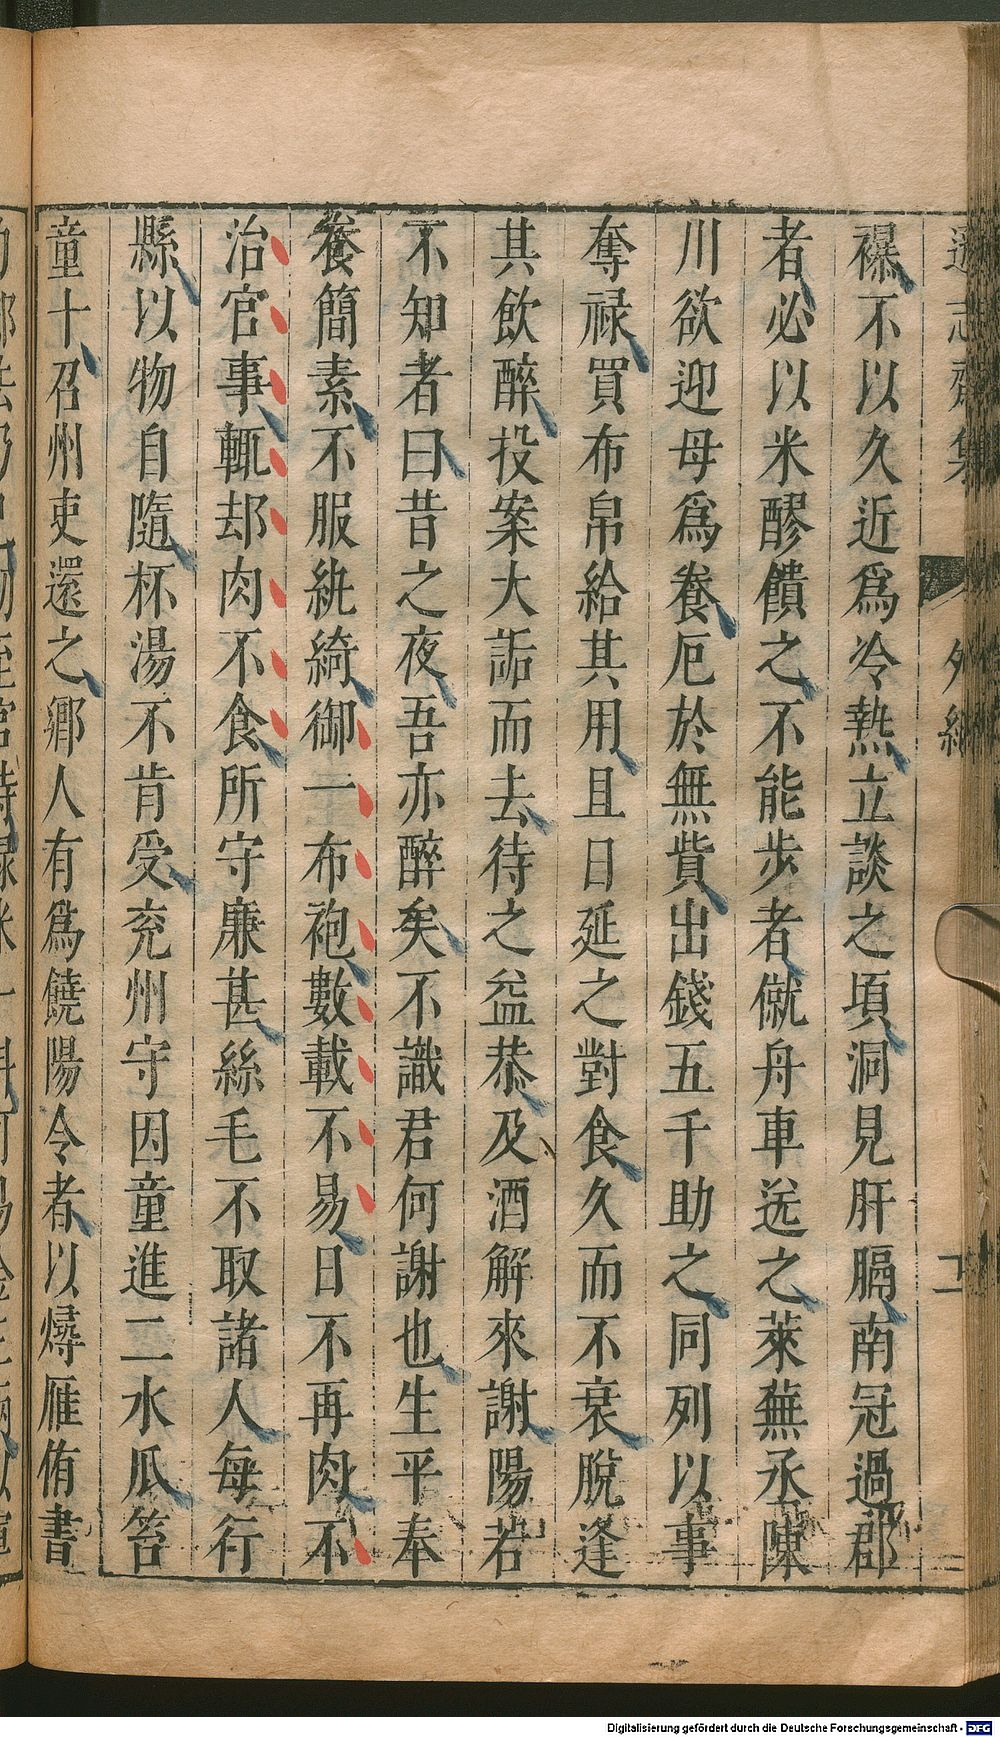 遜志齋集 外紀 二
襮不以久近爲冷熱立談之頃洞見肝膈南冠過郡
者必以米醪饋之不能步者僦舟車送之萊蕪丞陳
川欲迎母爲養厄於無貲出錢五千助之同列以事
奪祿買布帛給其用且日延之對食久而不衰脫逢
其飲醉投案大詬而去待之益恭及酒解來謝陽若
不知者曰昔之夜吾亦醉矣不識君何謝也生平奉
養簡素不服紈綺御一布袍數載不易日不再肉不
治官事輒却肉不食所守廉甚絲毛不取諸人每行
縣以物自隨杯湯不肯受兖州守因童進二水瓜笞
童十召州吏還之鄉人有爲饒陽令者以燖雁侑書
Digitalisierung gefördert durch die Deutsche Forschungsgemeinschaft - DFG